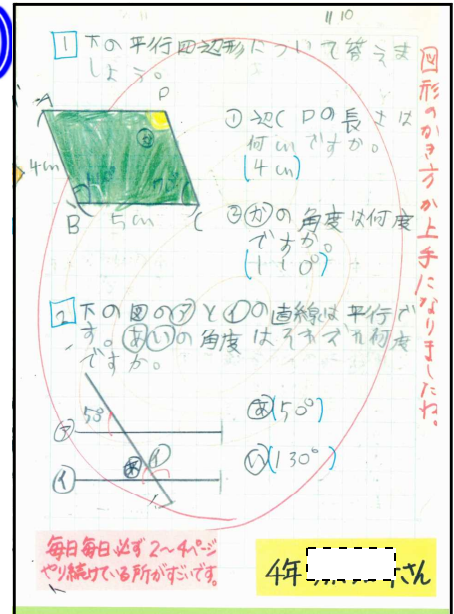 11 10
1 下の平行四辺形について答えま
しょう。
A
D
か
4cm
110°
70°
B
5cm
C
① 辺CDの長さは
何cmですか。
(4cm)
② かの角度は何度
ですか。
(110°)
2 下の図のアとイの直線は平行で
す。あいの角度はそれぞれ何度
ですか。
50°
ア
あ
い
イ
あ(50°)
い(130°)
図形のかき方が上手になりましたね。
毎日毎日必ず2〜4ページ
やり続けている所がすごいです。
4年
さん